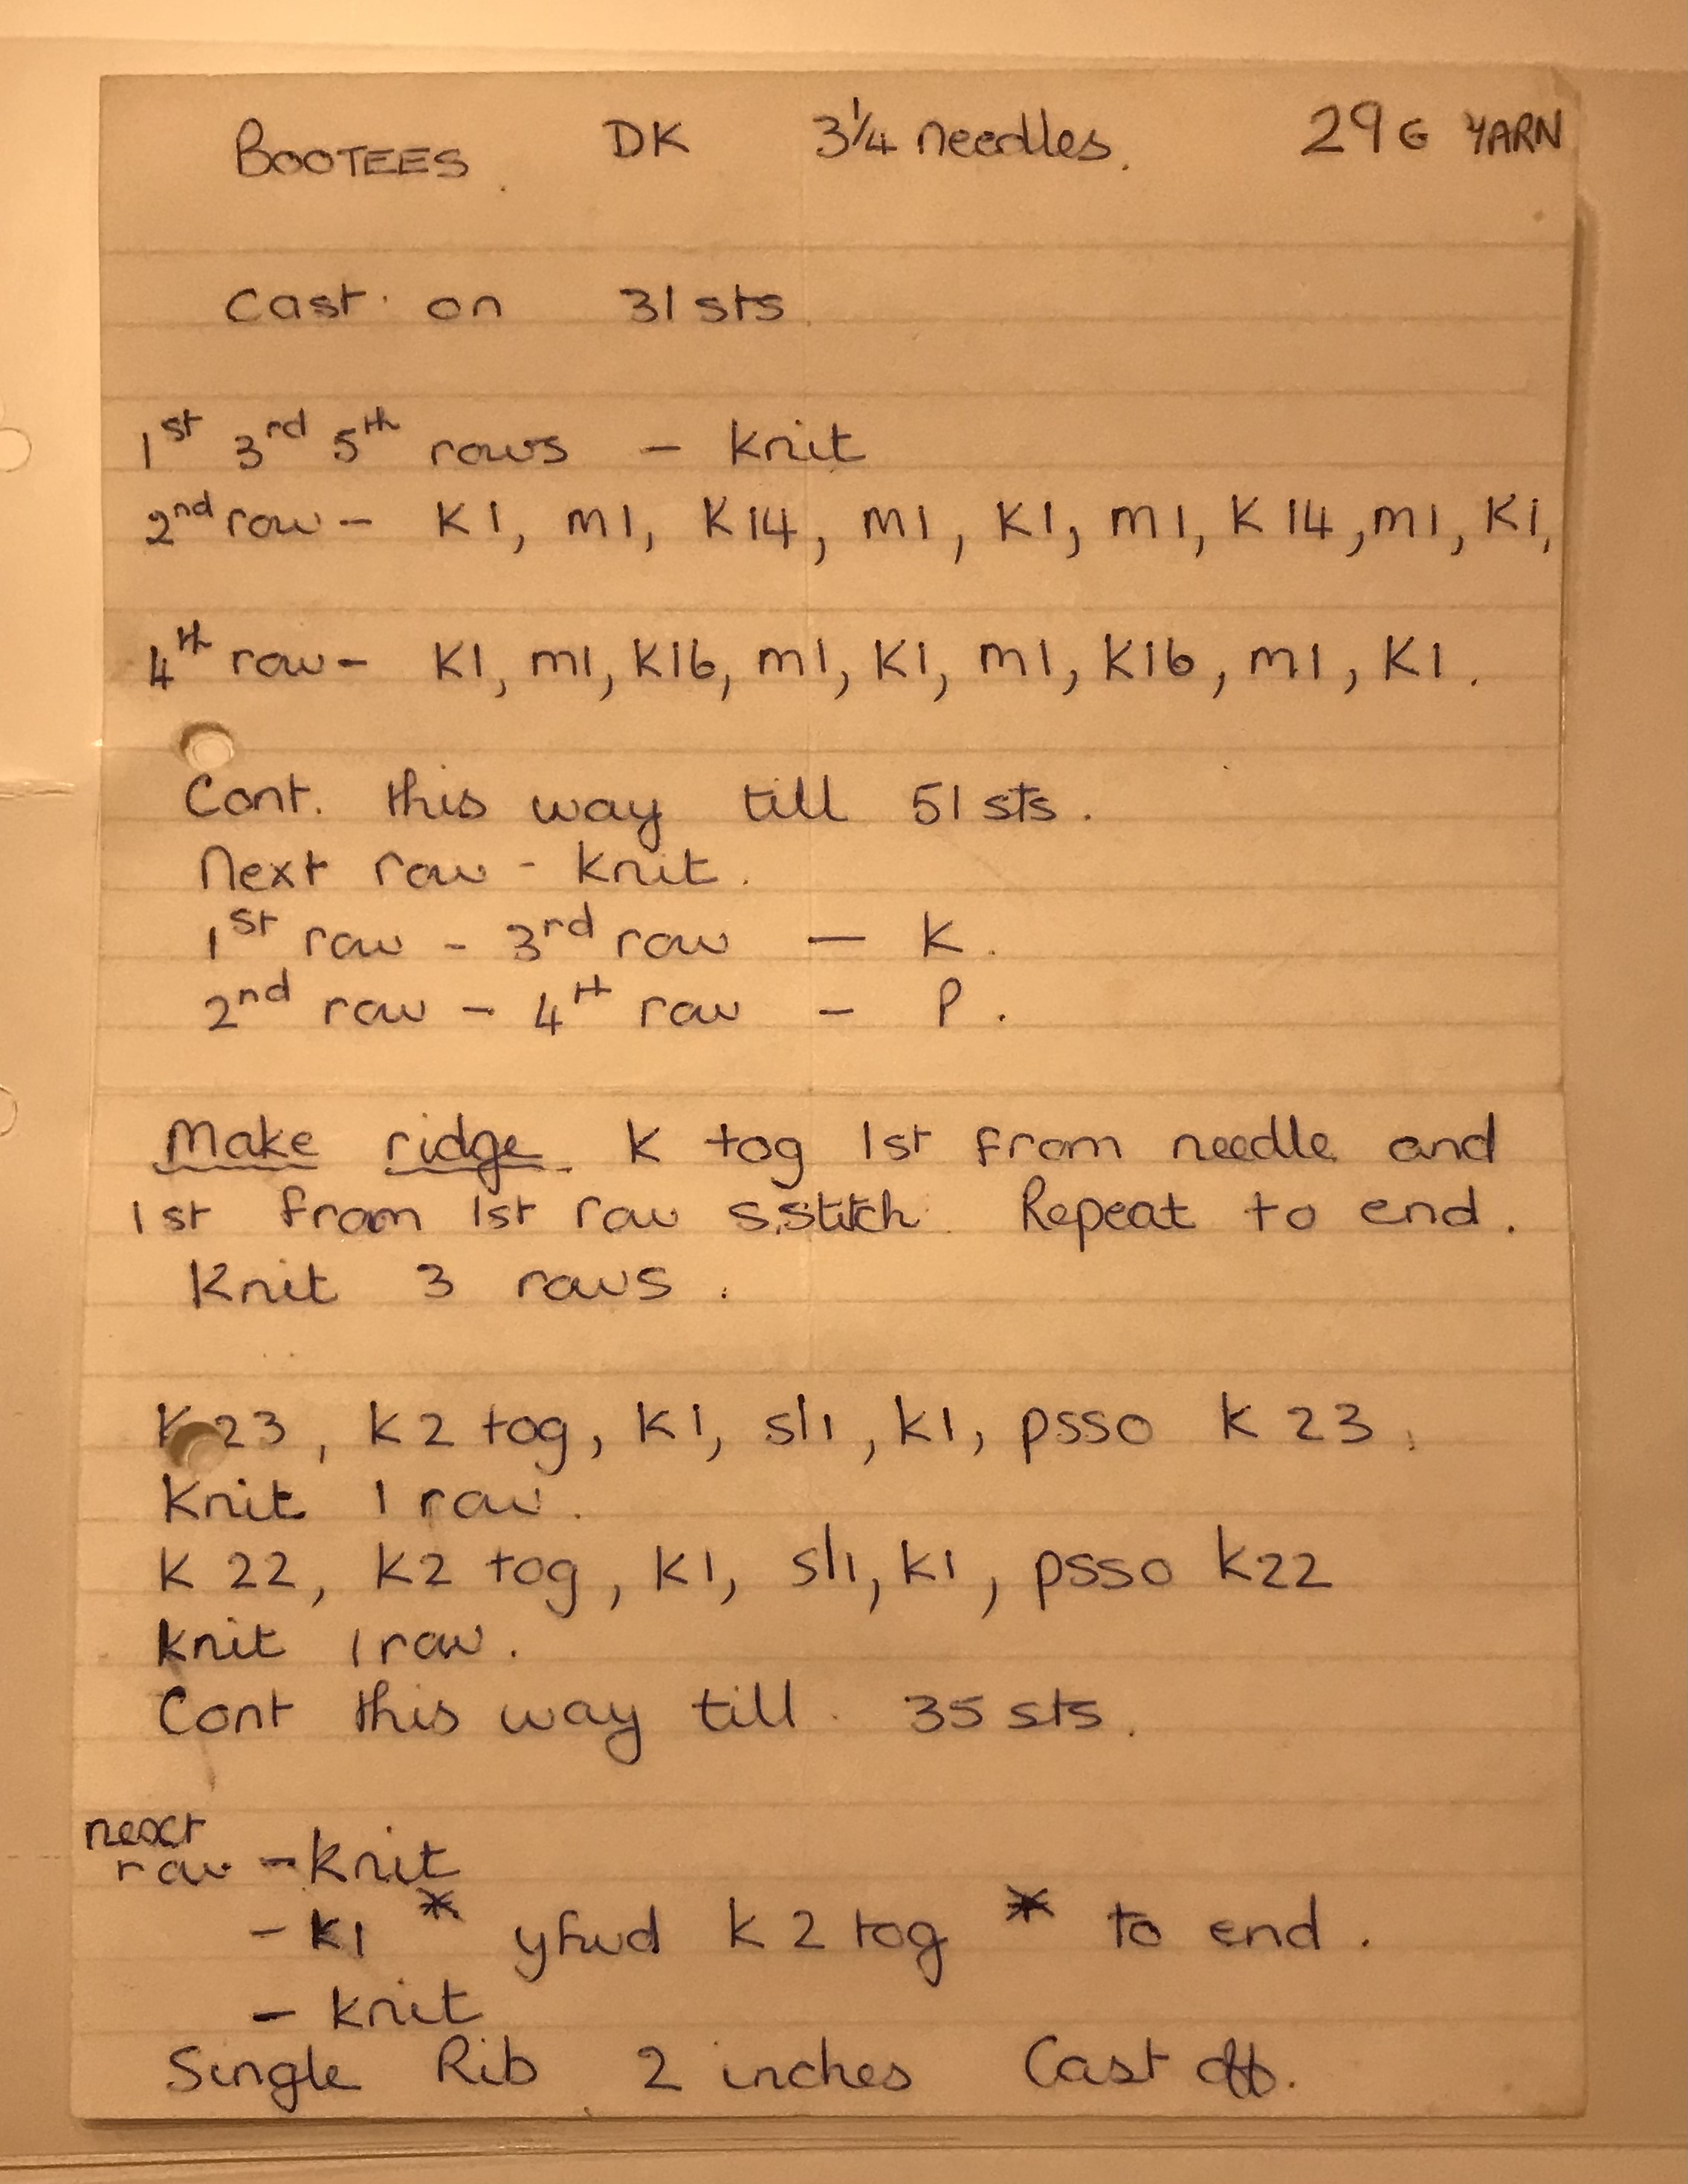 BOOTEES. DK 3¼ needles. 29G YARN
Cast on 31 sts
1st 3rd 5th rows - knit
2nd row - K1, m1, K14, m1, K1, m1, K14, m1, K1,
4th row - K1, m1, K16, m1, K1, m1, K16, m1, K1.
Cont. this way till 51 sts.
Next row - knit.
1st row - 3rd row - K.
2nd row - 4th row - P.
Make ridge. K tog 1st from needle and
1st from 1st row s.stitch. Repeat to end.
Knit 3 rows.
K 23, K2 tog, K1, sl1, k1, psso K 23.
Knit 1 row.
K 22, K2 tog, K1, sl1, k1, psso k22
knit 1 row.
Cont this way till 35 sts.
next
row - knit
- k1 * yfwd k2 tog * to end.
- knit
Single Rib 2 inches Cast off.